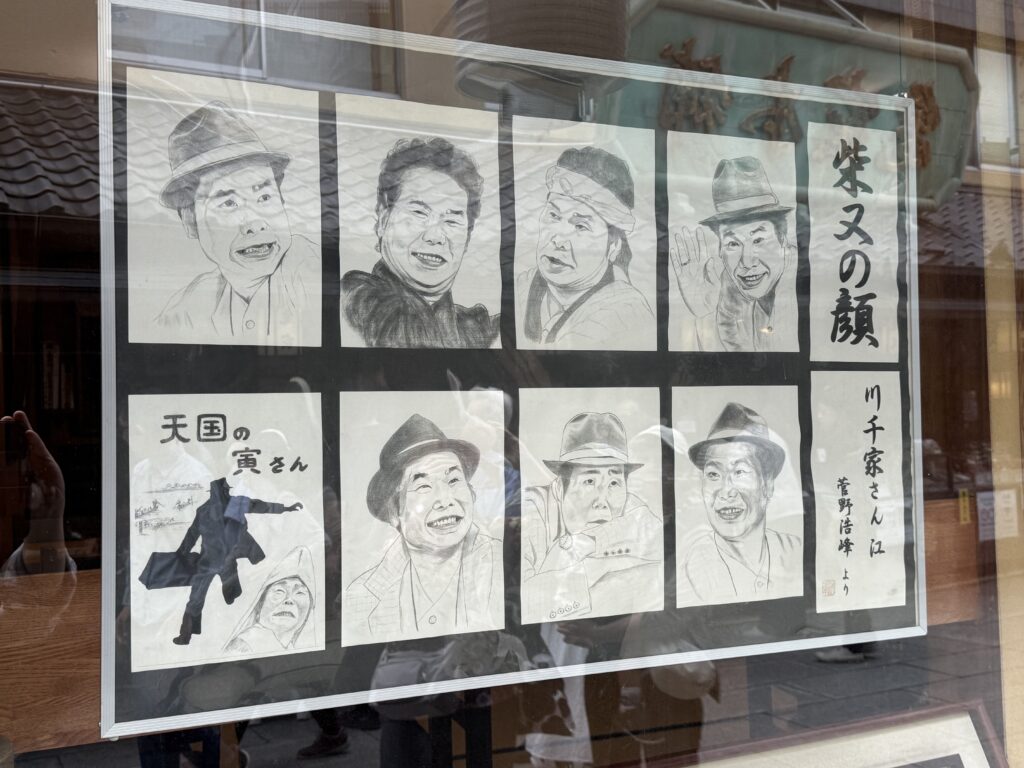 柴又の顔
川千家さん江
菅野浩峰 より
天国の
寅さん